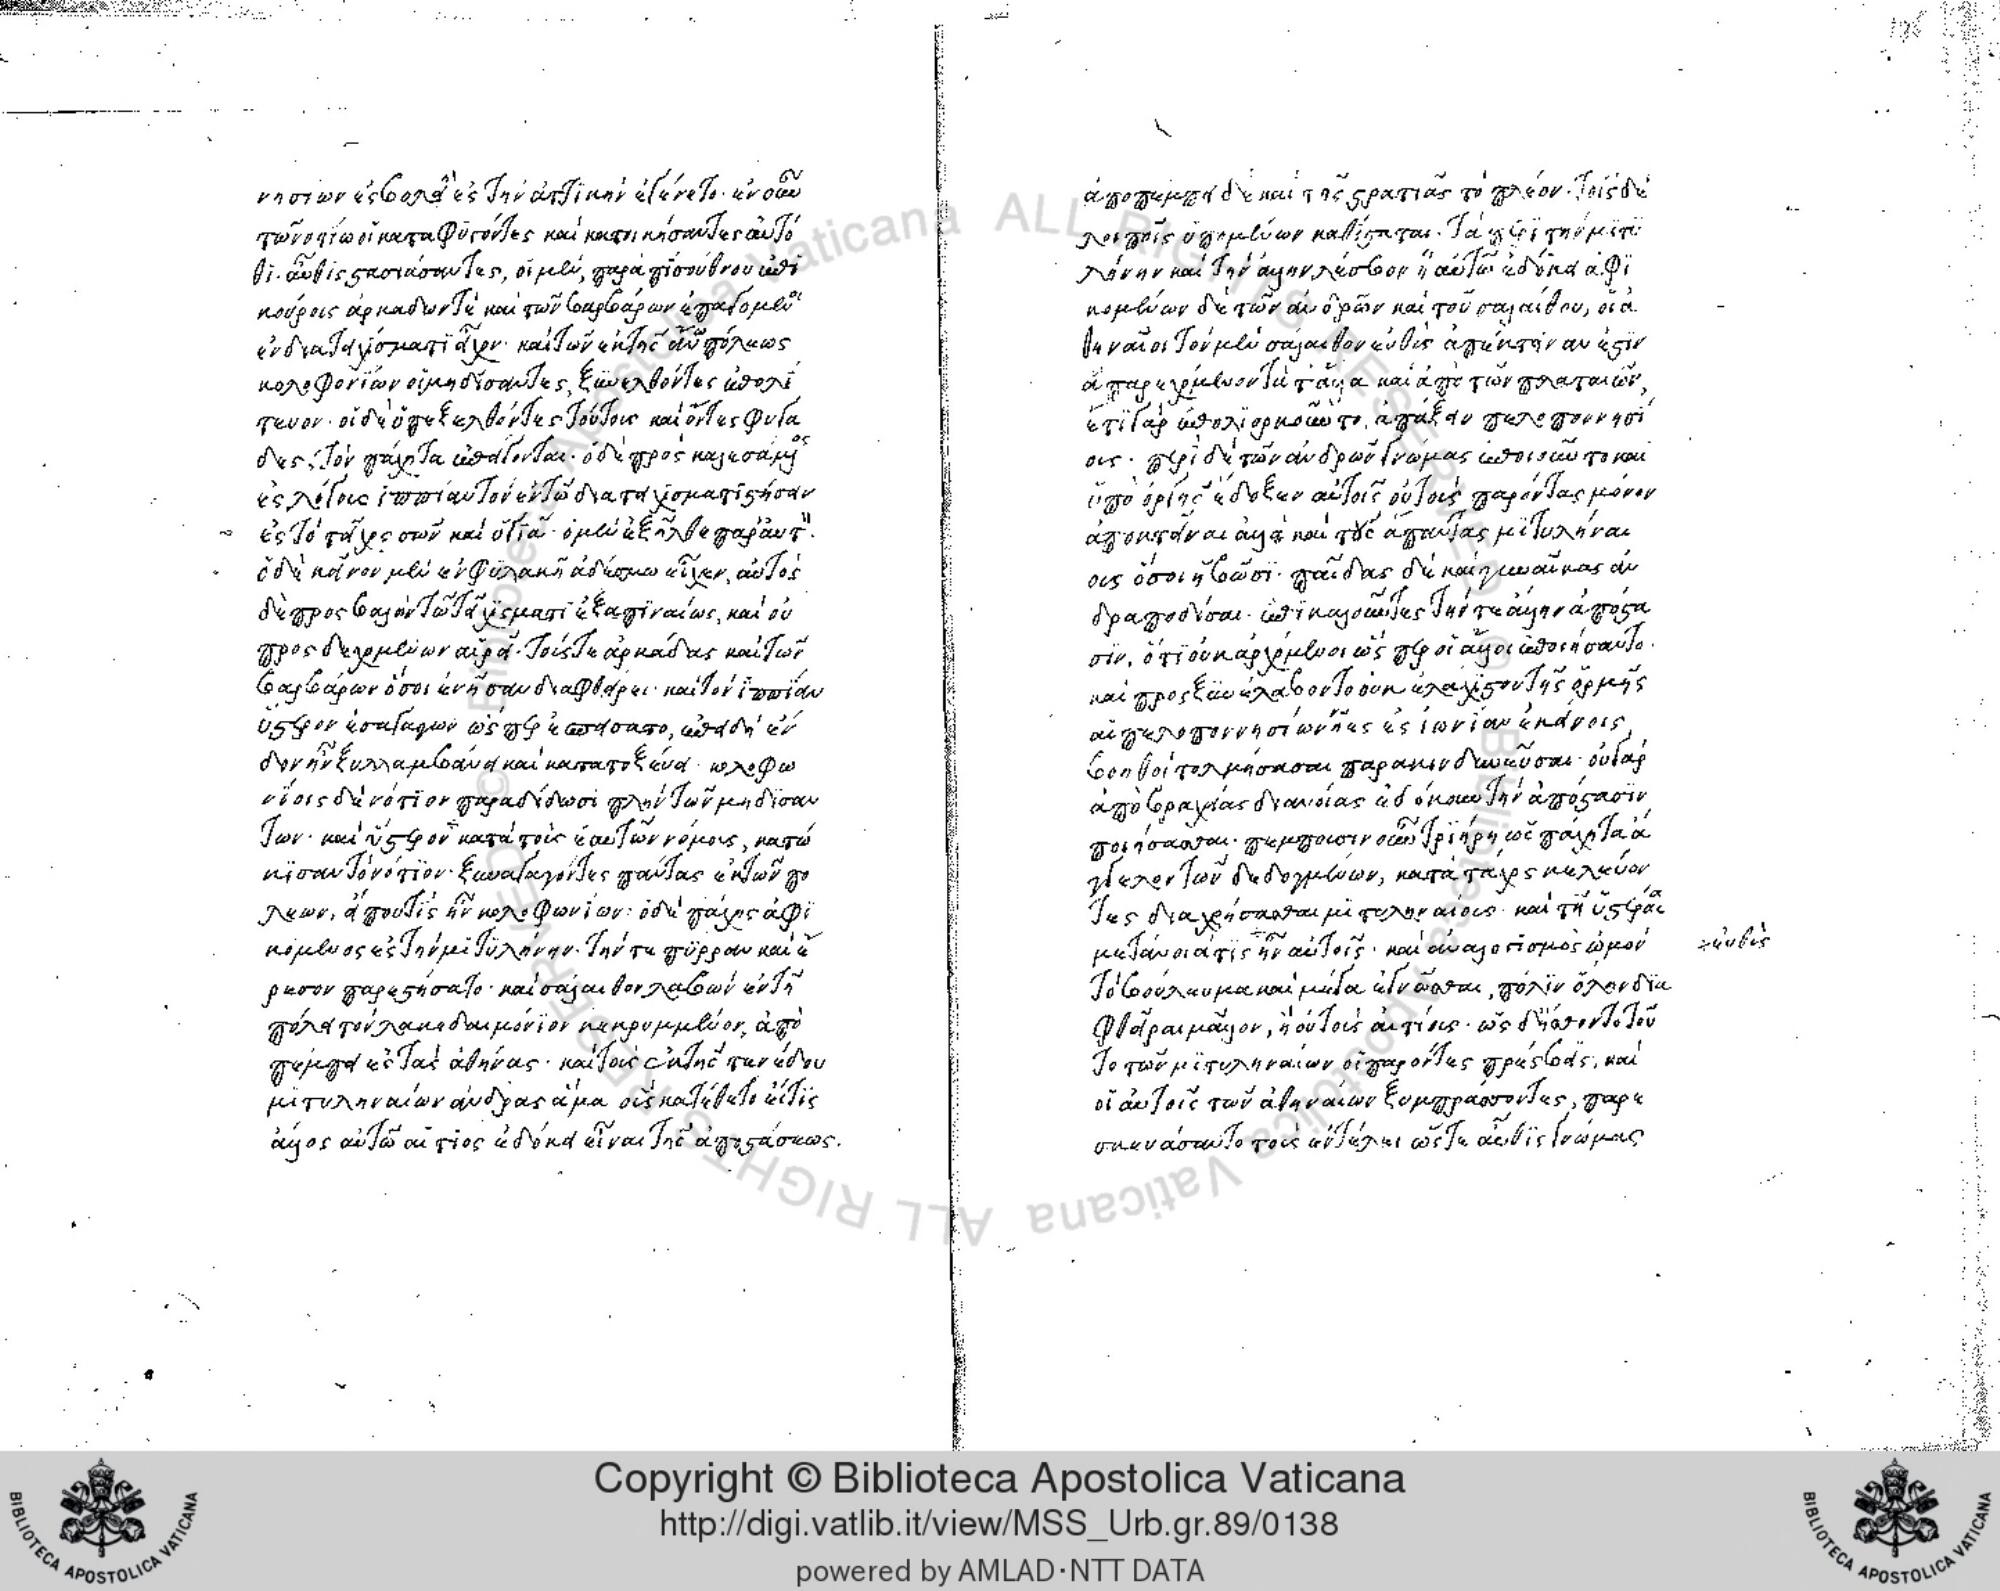 νησίων ἐσβολὴ ἐς τὴν ἀττικὴν ἐγένετο· ἐν οὖν
τῶ νοτίω οἱ καταφυγόντες καὶ κατοικήσαντες αὐτό
θι· αὖθις στασιάσαντες, οἱ μὲν, παρὰ πισούθνου ἐπι
κούρους ἀρκάδων τὲ καὶ τῶν βαρβάρων ἐπαγόμενοι
ἐν διατειχίσματι εἶχον· καὶ τῶν ἐκ τῆς ἄνω πόλεως
κολοφονίων οἱ μηδίσαντες, ξυνελθόντες ἐπολί
τευον· οἱ δὲ ὑπεξελθόντες τούτοις καὶ ὄντες φυγά
δες, τὸν πάχητα ἐπάγονται· ὁ δὲ προσκαλεσάμενος
ἐς λόγους ἱππίαν τὸν ἐν τῶ διατειχίσματι
ἐς τὸ τεῖχος σῶν καὶ ὑγιᾶ· ὁ μὲν ἐξῆλθε παρ' αὐτὸν·
ὁ δὲ κεῖνον μὲν ἐν φυλακῆ ἀδέσμω εἶχεν, αὐτὸς
δὲ προσβαλὼν τῶ τειχίσματι ἐξαπιναίως, καὶ οὐ
προσδεχομένων αἱρεῖ· τούς τε ἀρκάδας καὶ τῶν
βαρβάρων ὅσοι ἐνῆσαν διαφθείρει· καὶ τὸν ἱππίαν
ὕστερον ἐσαγαγὼν ὥσπερ ἐσπείσατο, ἐπειδὴ ἔν
δον ἦν ξυλλαμβάνει καὶ κατατοξεύει· κολοφω
νίοις δὲ νότιον παραδίδωσι πλὴν τῶν μηδισάν
των· καὶ ὕστερον κατὰ τοὺς ἑαυτῶν νόμους, κατώ
κισαν τὸ νότιον· ξυναγαγόντες πάντας ἐκ τῶν πό
λεων, εἴ πού τις ἦν κολοφωνίων· ὁ δὲ πάχης ἀφι
κόμενος ἐς τὴν μιτυλήνην· τήν τε πύρραν καὶ ἔ
ρεσον παρεστήσατο· καὶ σάλαιθον λαβὼν ἐν τῆ
πόλει τὸν λακεδαιμόνιον κεκρυμμένον, ἀπο
πέμπει ἐς τὰς ἀθήνας· καὶ τοὺς ἐκ τῆς τενέδου
μιτυληναίων ἄνδρας ἅμα οὓς κατέθετο εἴ τις
ἄλλος αὐτῶ αἴτιος ἐδόκει εἶναι τῆς ἀποστάσεως.
ἀποπέμπει δὲ καὶ τῆς στρατιᾶς τὸ πλέον· τοῖς δὲ
λοιποῖς ὑπομένων καθίστατο· τὰ περὶ τὴν μιτυ
λήνην καὶ τὴν ἄλλην λέσβον ἧ αὐτῶ ἐδόκει ἀφι
κομένων δὲ τῶν ἀνδρῶν καὶ τοῦ σαλαίθου, οἱ ἀ
θηναῖοι τὸν μὲν σάλαιθον εὐθὺς ἀπέκτειναν ἔστιν
ἃ παρεχόμενον τά τ' ἄλλα καὶ ἀπὸ τῶν πλαταιῶν,
ἔτι γὰρ ἐπολιορκοῦντο, ἀπάξειν πελοποννησί
ους· περὶ δὲ τῶν ἀνδρῶν γνώμας ἐποιοῦντο καὶ
ὑπὸ ὀργῆς ἔδοξεν αὐτοῖς οὐ τοὺς παρόντας μόνον
ἀποκτεῖναι ἀλλὰ καὶ τοὺς ἅπαντας μιτυληναί
ους ὅσοι ἡβῶσι· παῖδας δὲ καὶ γυναῖκας ἀν
δραποδίσαι· ἐπικαλοῦντες τήν τε ἄλλην ἀπόστα
σιν, ὅτι οὐκ ἀρχόμενοι ὥσπερ οἱ ἄλλοι ἐποιήσαντο·
καὶ προσξυνελάβοντο οὐκ ἐλάχιστον τῆς ὁρμῆς
αἱ πελοποννησίων νῆες ἐς ἰωνίαν ἐκείνοις,
βοηθοὶ τολμήσασαι παρακινδυνεῦσαι· οὐ γὰρ
ἀπὸ βραχείας διανοίας ἐδόκουν τὴν ἀπόστασιν
ποιήσασθαι· πέμπουσιν οὖν τριήρη ὡς πάχητα ἄ
γγελον τῶν δεδογμένων, κατὰ τάχος κελεύον
τες διαχρήσασθαι μιτυληναίους· καὶ τῆ ὑστεραία
μετάνοιά τις ἦν αὐτοῖς· καὶ ἀναλογισμὸς ὠμὸν
εὐθὺς
τὸ βούλευμα καὶ μέγα ἐγνῶσθαι, πόλιν ὅλην δια
φθεῖραι μᾶλλον, ἢ οὐ τοὺς αἰτίους· ὡς δ' ἤσθοντο τοῦ
το τῶν μιτυληναίων οἱ παρόντες πρέσβεις, καὶ
οἱ αὐτοῖς τῶν ἀθηναίων ξυμπράσσοντες, παρε
σκευάσαντο τοὺς ἐν τέλει ὥστε αὖθις γνώμας
Copyright © Biblioteca Apostolica Vaticana
http://digi.vatlib.it/view/MSS_Urb.gr.89/0138
powered by AMLAD·NTT DATA
BIBLIOTECA APOSTOLICA VATICANA
BIBLIOTECA APOSTOLICA VATICANA